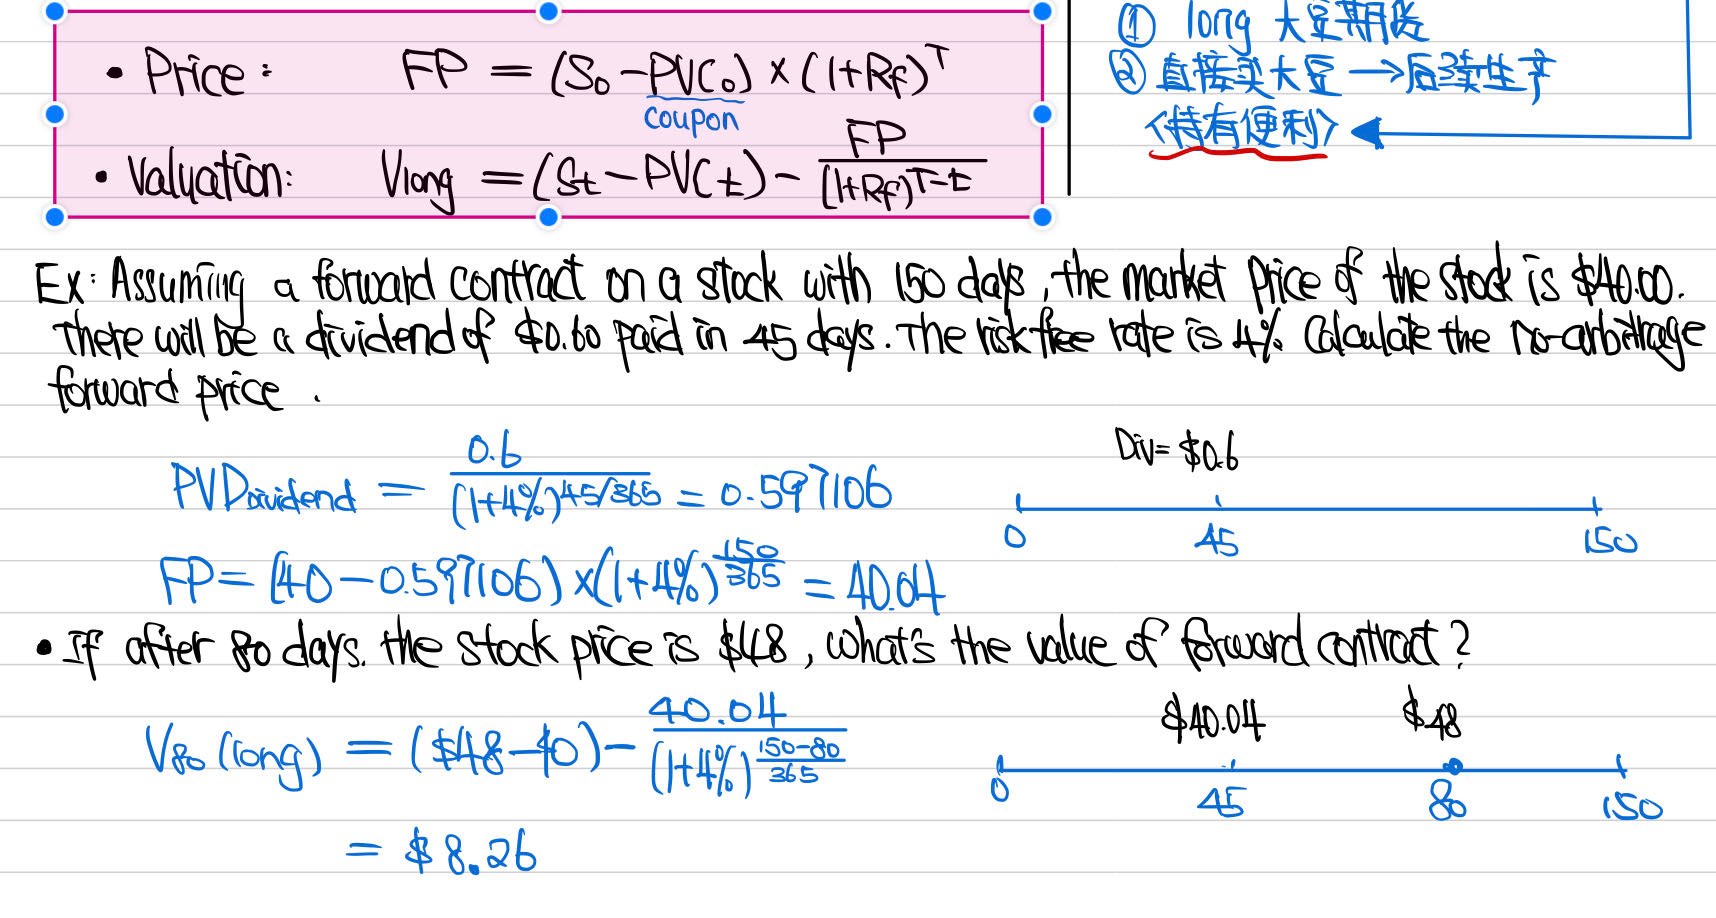 ① long 大豆期货
② 直接买大豆 → 后续生产
<持有便利>
• Price: FP = (S₀ - PVC₀) × (1+Rf)^T
coupon
• Valuation: Vlong = (St - PVCt) - FP/(1+Rf)^T-t
Ex: Assuming a forward contract on a stock with 150 days, the market price of the stock is $40.00.
There will be a dividend of $0.60 paid in 45 days. The risk free rate is 4%. Calculate the no-arbitrage
forward price.
Div = $0.6
PVD Dividend = 0.6/(1+4%)^45/365 = 0.597106
0 45 150
FP = (40 - 0.597106) × (1+4%)^150/365 = 40.04
• If after 80 days. the stock price is $48, what's the value of forward contract?
$40.04 $48
V₈₀ (long) = ($48 - $0) - 40.04/(1+4%)^(150-80)/365
0 45 80 150
= $8.26